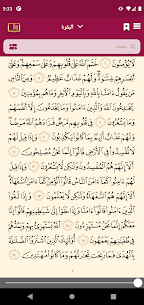 9:33
البقرة
بحث
لَا يُؤْمِنُونَ ٦ خَتَمَ ٱللَّهُ عَلَىٰ قُلُوبِهِمْ وَعَلَىٰ سَمْعِهِمْ وَعَلَىٰ
أَبْصَٰرِهِمْ غِشَٰوَةٌ وَلَهُمْ عَذَابٌ عَظِيمٌ ٧ وَمِنَ ٱلنَّاسِ مَن
يَقُولُ ءَامَنَّا بِٱللَّهِ وَبِٱلْيَوْمِ ٱلْءَاخِرِ وَمَا هُم بِمُؤْمِنِينَ ٨
يُخَٰدِعُونَ ٱللَّهَ وَٱلَّذِينَ ءَامَنُوا۟ وَمَا يَخْدَعُونَ إِلَّآ أَنفُسَهُمْ
وَمَا يَشْعُرُونَ ٩ فِى قُلُوبِهِم مَّرَضٌ فَزَادَهُمُ ٱللَّهُ مَرَضًا
وَلَهُمْ عَذَابٌ أَلِيمٌۢ بِمَا كَانُوا۟ يَكْذِبُونَ ١٠ وَإِذَا قِيلَ لَهُمْ
لَا تُفْسِدُوا۟ فِى ٱلْأَرْضِ قَالُوٓا۟ إِنَّمَا نَحْنُ مُصْلِحُونَ ١١
أَلَآ إِنَّهُمْ هُمُ ٱلْمُفْسِدُونَ وَلَٰكِن لَّا يَشْعُرُونَ ١٢ وَإِذَا قِيلَ
لَهُمْ ءَامِنُوا۟ كَمَآ ءَامَنَ ٱلنَّاسُ قَالُوٓا۟ أَنُؤْمِنُ كَمَآ ءَامَنَ ٱلسُّفَهَآءُ
أَلَآ إِنَّهُمْ هُمُ ٱلسُّفَهَآءُ وَلَٰكِن لَّا يَعْلَمُونَ ١٣ وَإِذَا لَقُوا۟
ٱلَّذِينَ ءَامَنُوا۟ قَالُوٓا۟ ءَامَنَّا وَإِذَا خَلَوْا۟ إِلَىٰ شَيَٰطِينِهِمْ قَالُوٓا۟
إِنَّا مَعَكُمْ إِنَّمَا نَحْنُ مُسْتَهْزِءُونَ ١٤ ٱللَّهُ يَسْتَهْزِئُ بِهِمْ وَيَمُدُّهُمْ
فِى طُغْيَٰنِهِمْ يَعْمَهُونَ ١٥ أُو۟لَٰٓئِكَ ٱلَّذِينَ ٱشْتَرَوُا۟ ٱلضَّلَٰلَةَ
بِٱلْهُدَىٰ فَمَا رَبِحَت تِّجَٰرَتُهُمْ وَمَا كَانُوا۟ مُهْتَدِينَ ١٦